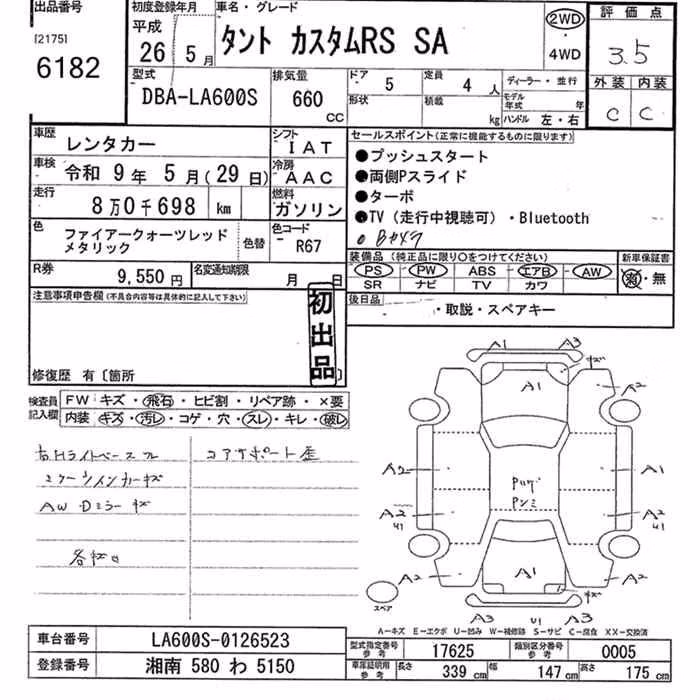 出品番号
[2175]
6182
初度登録年月
平成
26 5月
車名・グレード
タント カスタムRS SA
2WD
・
4WD
評価点
3.5
外装 内装
C C
型式
DBA-LA600S
排気量
660
CC
ドア
5
定員
4 人
形状
積載
kg
ディーラー・並行
モデル年式 年
ハンドル 左・右
車歴
レンタカー
シフト
IAT
車検
令和 9年 5月(29日)
冷房
AAC
走行
8万0千698 km
燃料
ガソリン
色
ファイアークォーツレッド
メタリック
色替
色コード
R67
R券
9,550円
名変通知期限
月 日
セールスポイント(正常に機能するものに限ります)
●プッシュスタート
●両側Pスライド
●ターボ
●TV(走行中視聴可)・Bluetooth
装備品(純正品に限り○をつけてください)
PS PW ABS エアB AW
SR ナビ TV カワ
新車保証書
・無
後日品
・取説・スペアキー
注意事項申告欄(不具合内容等は具体的に記入して下さい)
初出品
修復歴 有〔箇所 〕
検査員記入欄
FW キズ・飛石・ヒビ割・リペア跡・×要
内装 キズ・汚レ・コゲ・穴・スレ・キレ・破レ
コアサポート
AW Dミラー
A1 A3
A1
A2
A2 A1
A2 A2
U1 U1
A1
A2 A2
A3 U1 A3
スペア
A-キズ E-エクボ U-凹み W-補修跡 S-サビ C-腐食 XX-交換済
車台番号
LA600S-0126523
登録番号
湘南 580 わ 5150
型式指定番号
参考
17625
類別区分番号
参考
0005
車庫証明用
参考
長さ 339 cm
幅 147 cm
高さ 175 cm